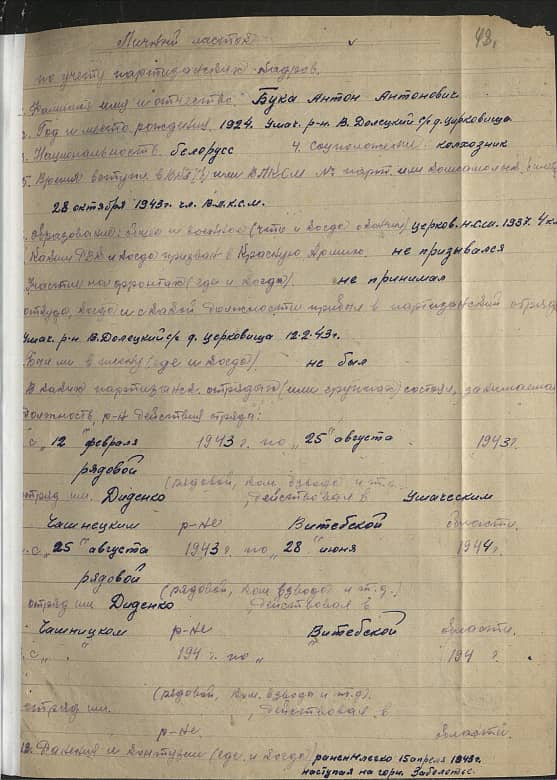 Личный листок 43.
по учету партизанских кадров.
Фамилия имя и отчество. Бука Антон Антонович
Год и место рождения 1924. Ушач. р-н. В. Долецкий с/с д. Церковища
Национальность белорусс 4. Соцположение колхозник
5. Время вступл. в ВКП(б) или ВЛКСМ № парт. или комсомольск.
28 октября 1943 г. чл. В.Л.К.С.М.
образование: общее и военное (что и когда окончил) церков. н.с.ш. 1937. 4 кл
Каким РВК и когда призван в Красную Армию. не призывался
Участие на фронтах (где и когда). не принимал
откуда, когда и с какой должности прибыл в партизанский отряд
Ушач. р-н. В. Долецкий с/с д. Церковища 12.2.43 г.
Был ли в плену (где и когда) не был
В каких партизанск. отрядах (или группах) состоял, занимаемая
должность, р-н действия отряда:
с „12" февраля 1943 г. по „25" августа 1943 г.
рядовой
(рядовой, ком. взвода и т.д.
отряд им. Диденко, действовал в Ушаческим
Чашнецким р-не Витебской области.
с „25" августа 1943 г. по „28" июня 1944 г.
рядовой
(рядовой, ком взвода и т.д.)
отряд им. Диденко, действовал в
Чашницком р-не Витебской области.
с „ " 194 г. по „ 194 г.
(рядовой, ком. взвода и т.д).
отряд им. , действовал в
р-не области.
12. Ранения и контузии (где и когда) ранен легко 15 апреля 1943 г.
наступал на горн. Заболотье.